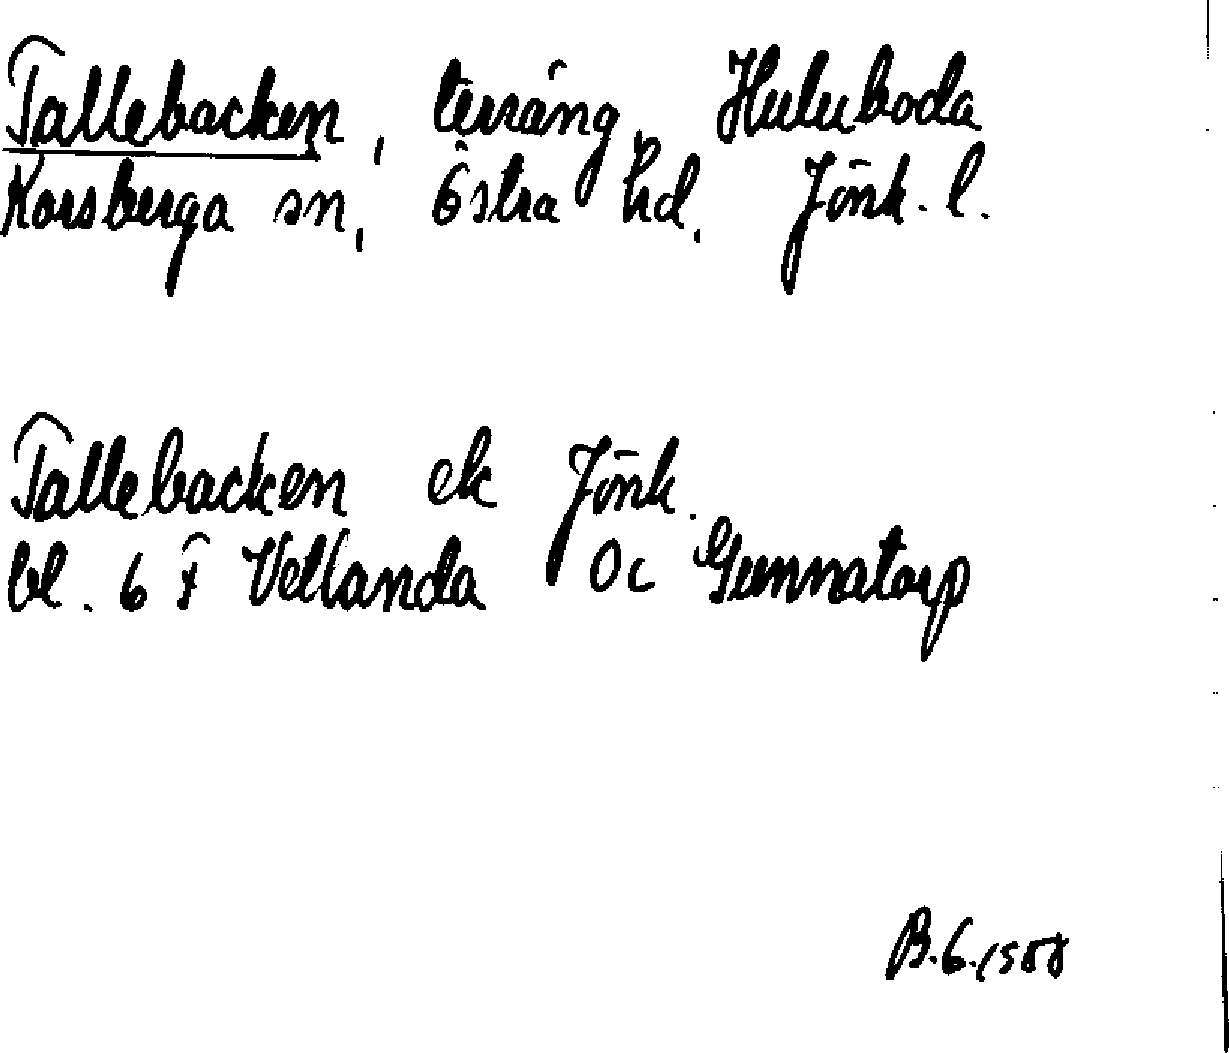 Tallebacken, terräng, Huluboda
Korsberga sn, Östra hd. Jönk. l.
Tallebacken ek Jönk.
bl. 6 F Vetlanda Oc Gunnatorp
B.G. 1988